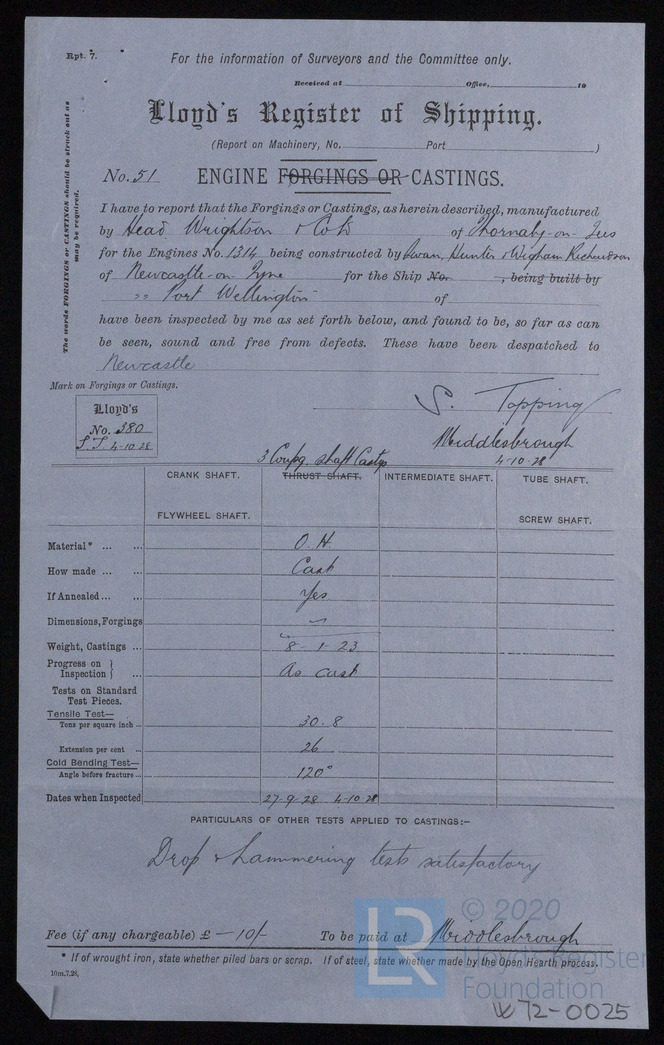 Rpt. 7.
For the information of Surveyors and the Committee only.
Received at Office, 19
Lloyd's Register of Shipping.
(Report on Machinery, No. Port )
The words FORGINGS or CASTINGS should be struck out as
may be required.
No. 51 ENGINE FORGINGS OR CASTINGS.
I have to report that the Forgings or Castings, as herein described, manufactured
by Head Wrightson & Co Ld of Thornaby-on-Tees
for the Engines No. 1314 being constructed by Swan, Hunter & Wigham Richardson
of Newcastle-on Tyne for the Ship No. , being built by
"Port Wellington" of
have been inspected by me as set forth below, and found to be, so far as can
be seen, sound and free from defects. These have been despatched to
Newcastle
Mark on Forgings or Castings.
Lloyd's
No. 380
S.T. 4-10-28
S. Topping
Middlesbrough
4-10-28
3 Coupg. shaft Castgs
CRANK SHAFT. THRUST SHAFT. INTERMEDIATE SHAFT. TUBE SHAFT.
FLYWHEEL SHAFT. SCREW SHAFT.
Material* ... ... O.H.
How made ... ... Cast
If Annealed ... ... Yes
Dimensions, Forgings
Weight, Castings ... 8-1-23
Progress on Inspection } ... As cast
Tests on Standard
Test Pieces.
Tensile Test—
Tons per square inch ... 30.8
Extension per cent ... 26
Cold Bending Test—
Angle before fracture ... 120°
Dates when Inspected 27-9-28 4-10-28
PARTICULARS OF OTHER TESTS APPLIED TO CASTINGS:-
Drop & hammering tests satisfactory
Fee (if any chargeable) £ -10/- To be paid at Middlesbrough
* If of wrought iron, state whether piled bars or scrap. If of steel, state whether made by the Open Hearth process.
10m,7,28,
LR
© 2020
Lloyd's Register
Foundation
W72-0025